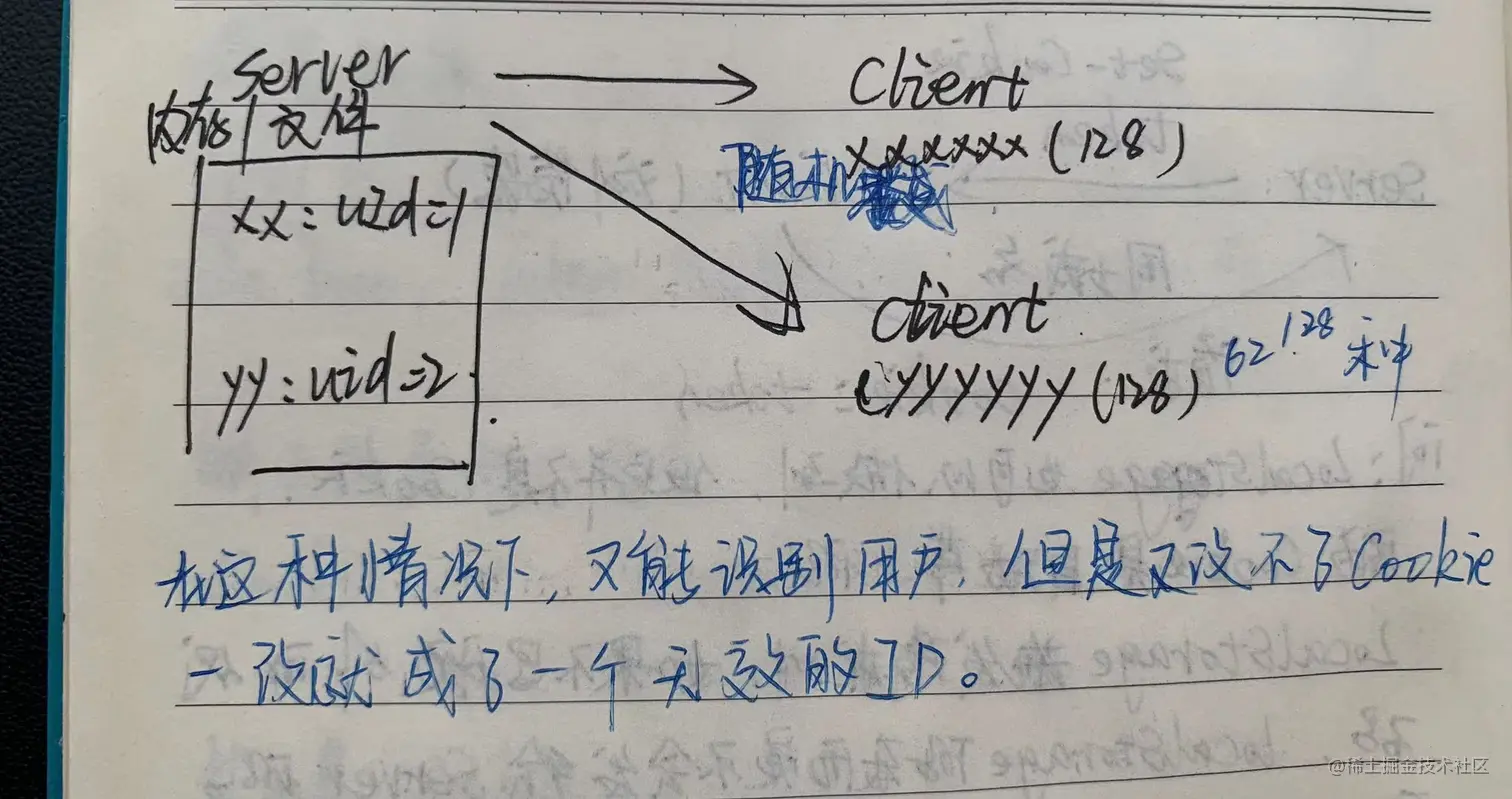 Server
Client
内存/文件
xxxxxx(128)
随机
xx:uid=1
Client
62^128 种
yy:uid=2
yyyyyy(128)
在这种情况下,又能识别用户,但是又改不了Cookie
一改就成了一个无效的ID。
@稀土掘金技术社区